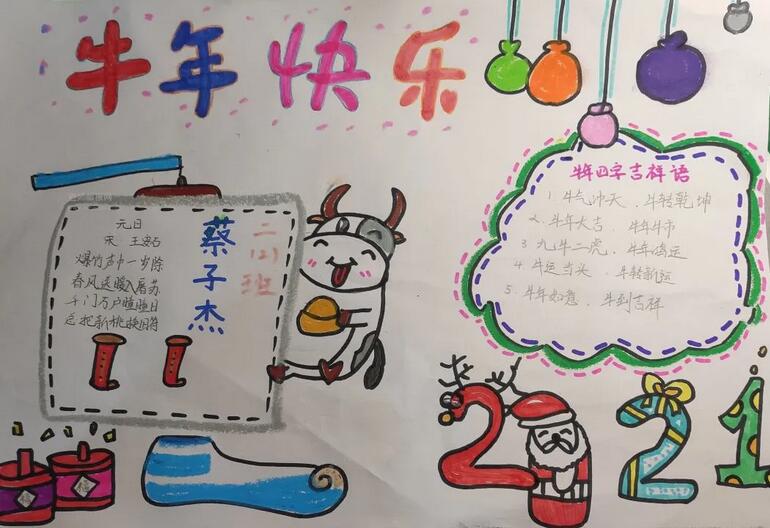 牛年快乐
元日
宋 王安石
爆竹声中一岁除
春风送暖入屠苏
千门万户曈曈日
总把新桃换旧符
二(2)班
蔡子杰
牛年四字吉祥语
1. 牛气冲天、牛转乾坤
2. 牛年大吉、牛年牛市
3. 九牛二虎、牛年鸿运
4. 牛运当头、牛转新运
5. 牛年如意、牛到吉祥
2021